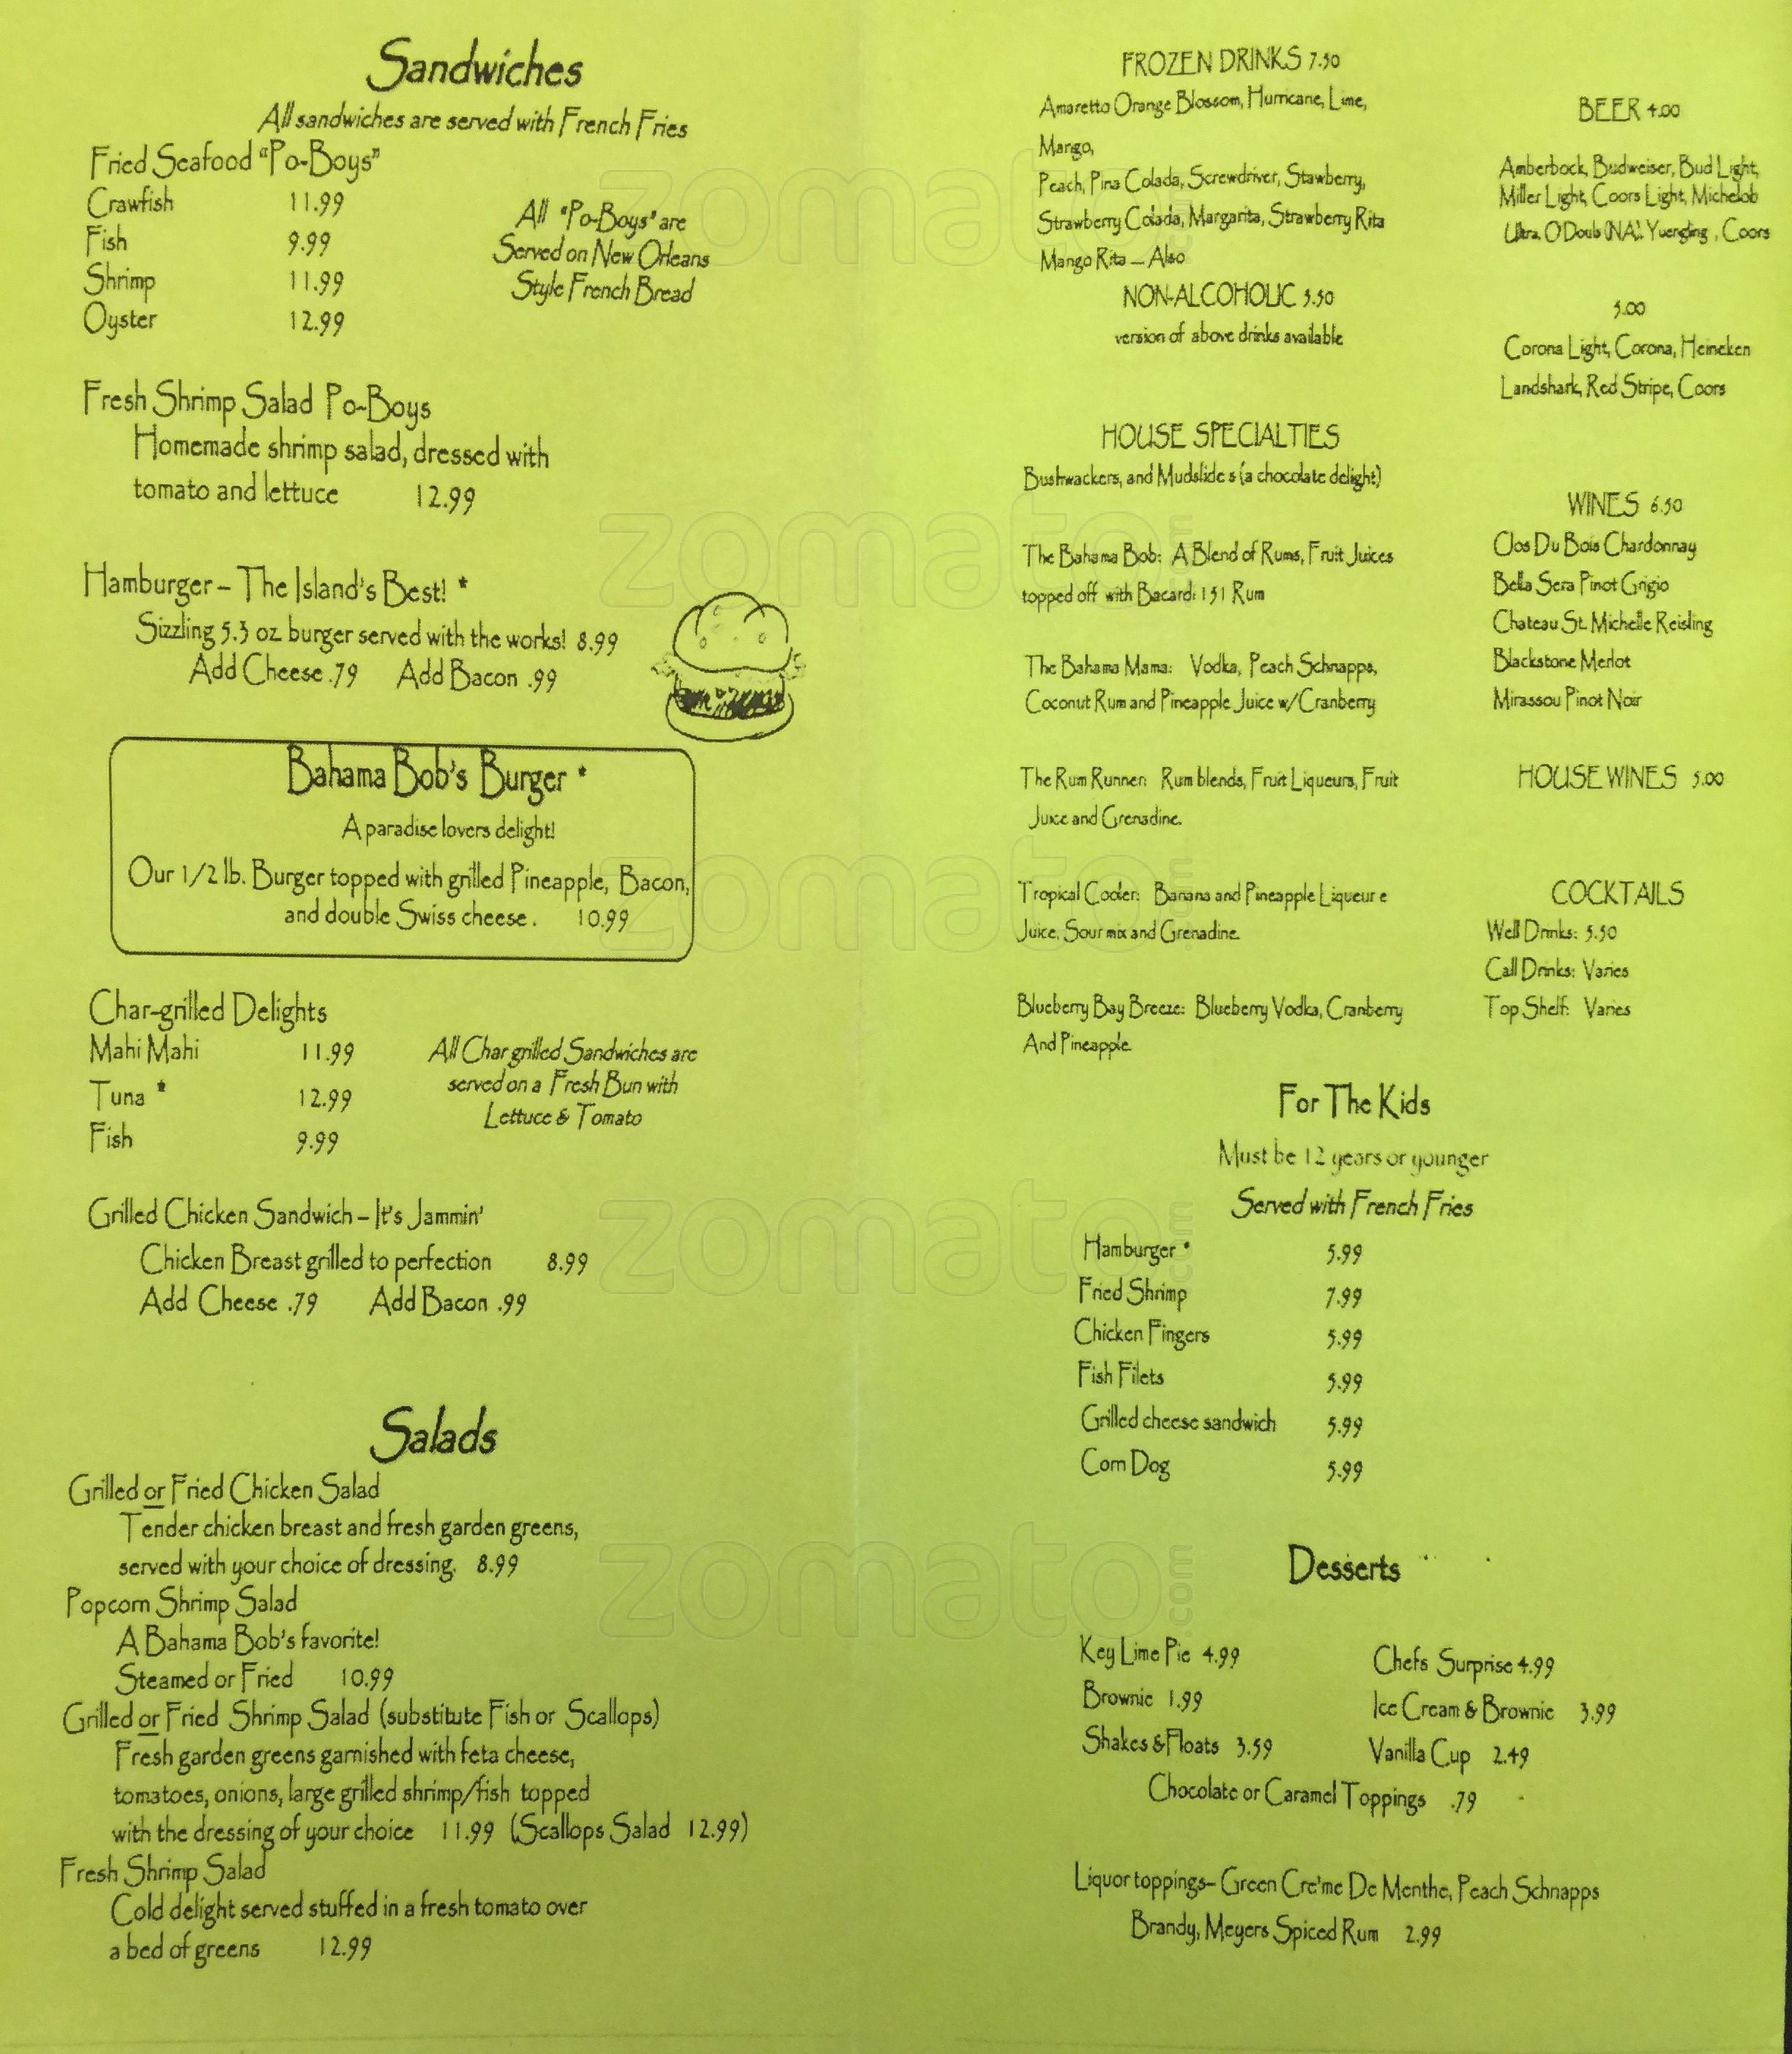 Sandwiches
All sandwiches are served with French Fries
Fried Seafood "Po-Boys"
Crawfish 11.99
Fish 9.99
Shrimp 11.99
Oyster 12.99
All "Po-Boys" are
Served on New Orleans
Style French Bread
Fresh Shrimp Salad Po-Boys
Homemade shrimp salad, dressed with
tomato and lettuce 12.99
Hamburger - The Island's Best! *
Sizzling 5.3 oz. burger served with the works! 8.99
Add Cheese .79 Add Bacon .99
Bahama Bob's Burger *
A paradise lovers delight!
Our 1/2 lb. Burger topped with grilled Pineapple, Bacon,
and double Swiss cheese. 10.99
Char-grilled Delights
Mahi Mahi 11.99
Tuna * 12.99
Fish 9.99
All Char grilled Sandwiches are
served on a Fresh Bun with
Lettuce & Tomato
Grilled Chicken Sandwich - It's Jammin'
Chicken Breast grilled to perfection 8.99
Add Cheese .79 Add Bacon .99
Salads
Grilled or Fried Chicken Salad
Tender chicken breast and fresh garden greens,
served with your choice of dressing. 8.99
Popcorn Shrimp Salad
A Bahama Bob's favorite!
Steamed or Fried 10.99
Grilled or Fried Shrimp Salad (substitute Fish or Scallops)
Fresh garden greens garnished with feta cheese,
tomatoes, onions, large grilled shrimp/fish topped
with the dressing of your choice 11.99 (Scallops Salad 12.99)
Fresh Shrimp Salad
Cold delight served stuffed in a fresh tomato over
a bed of greens 12.99
FROZEN DRINKS 7.50
Amaretto Orange Blossom, Hurricane, Lime,
Mango,
Peach, Pina Colada, Screwdriver, Stawberry,
Strawberry Colada, Margarita, Strawberry Rita
Mango Rita — Also
NON-ALCOHOLIC 5.50
version of above drinks available
HOUSE SPECIALTIES
Bushwackers, and Mudslide s (a chocolate delight)
The Bahama Bob: A Blend of Rums, Fruit Juices
topped off with Bacardi 151 Rum
The Bahama Mama: Vodka, Peach Schnapps,
Coconut Rum and Pineapple Juice w/Cranberry
The Rum Runner: Rum blends, Fruit Liqueurs, Fruit
Juice and Grenadine.
Tropical Cooler: Banana and Pineapple Liqueur e
Juice, Sour mix and Grenadine.
Blueberry Bay Breeze: Blueberry Vodka, Cranberry
And Pineapple.
BEER 4.00
Amberbock, Budweiser, Bud Light,
Miller Light, Coors Light, Michelob
Ultra, O'Douls (NA), Yuengling , Coors
5.00
Corona Light, Corona, Heineken
Landshark, Red Stripe, Coors
WINES 6.50
Clos Du Bois Chardonnay
Bella Sera Pinot Grigio
Chateau St. Michelle Reisling
Blackstone Merlot
Mirassou Pinot Noir
HOUSE WINES 5.00
COCKTAILS
Well Drinks: 5.50
Call Drinks: Varies
Top Shelf: Varies
For The Kids
Must be 12 years or younger
Served with French Fries
Hamburger * 5.99
Fried Shrimp 7.99
Chicken Fingers 5.99
Fish Filets 5.99
Grilled cheese sandwich 5.99
Corn Dog 5.99
Desserts
Key Lime Pie 4.99
Brownie 1.99
Shakes & Floats 3.59
Chefs Surprise 4.99
Ice Cream & Brownie 3.99
Vanilla Cup 2.49
Chocolate or Caramel Toppings .79
Liquor toppings- Green Cre'me De Menthe, Peach Schnapps
Brandy, Meyers Spiced Rum 2.99
zomato.com
zomato.com
zomato.com
zomato.com
zomato.com